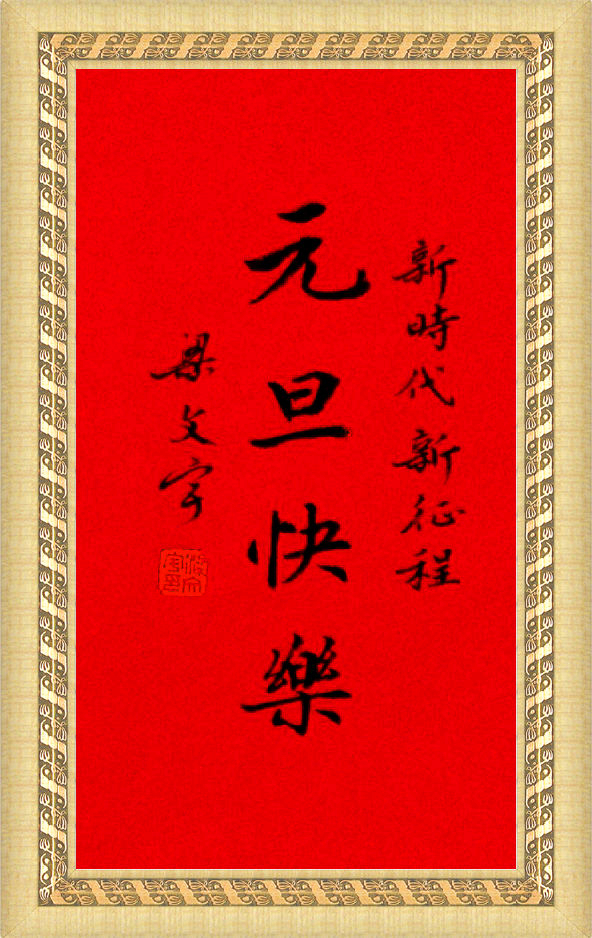 新時代新征程
元旦快樂
梁文字